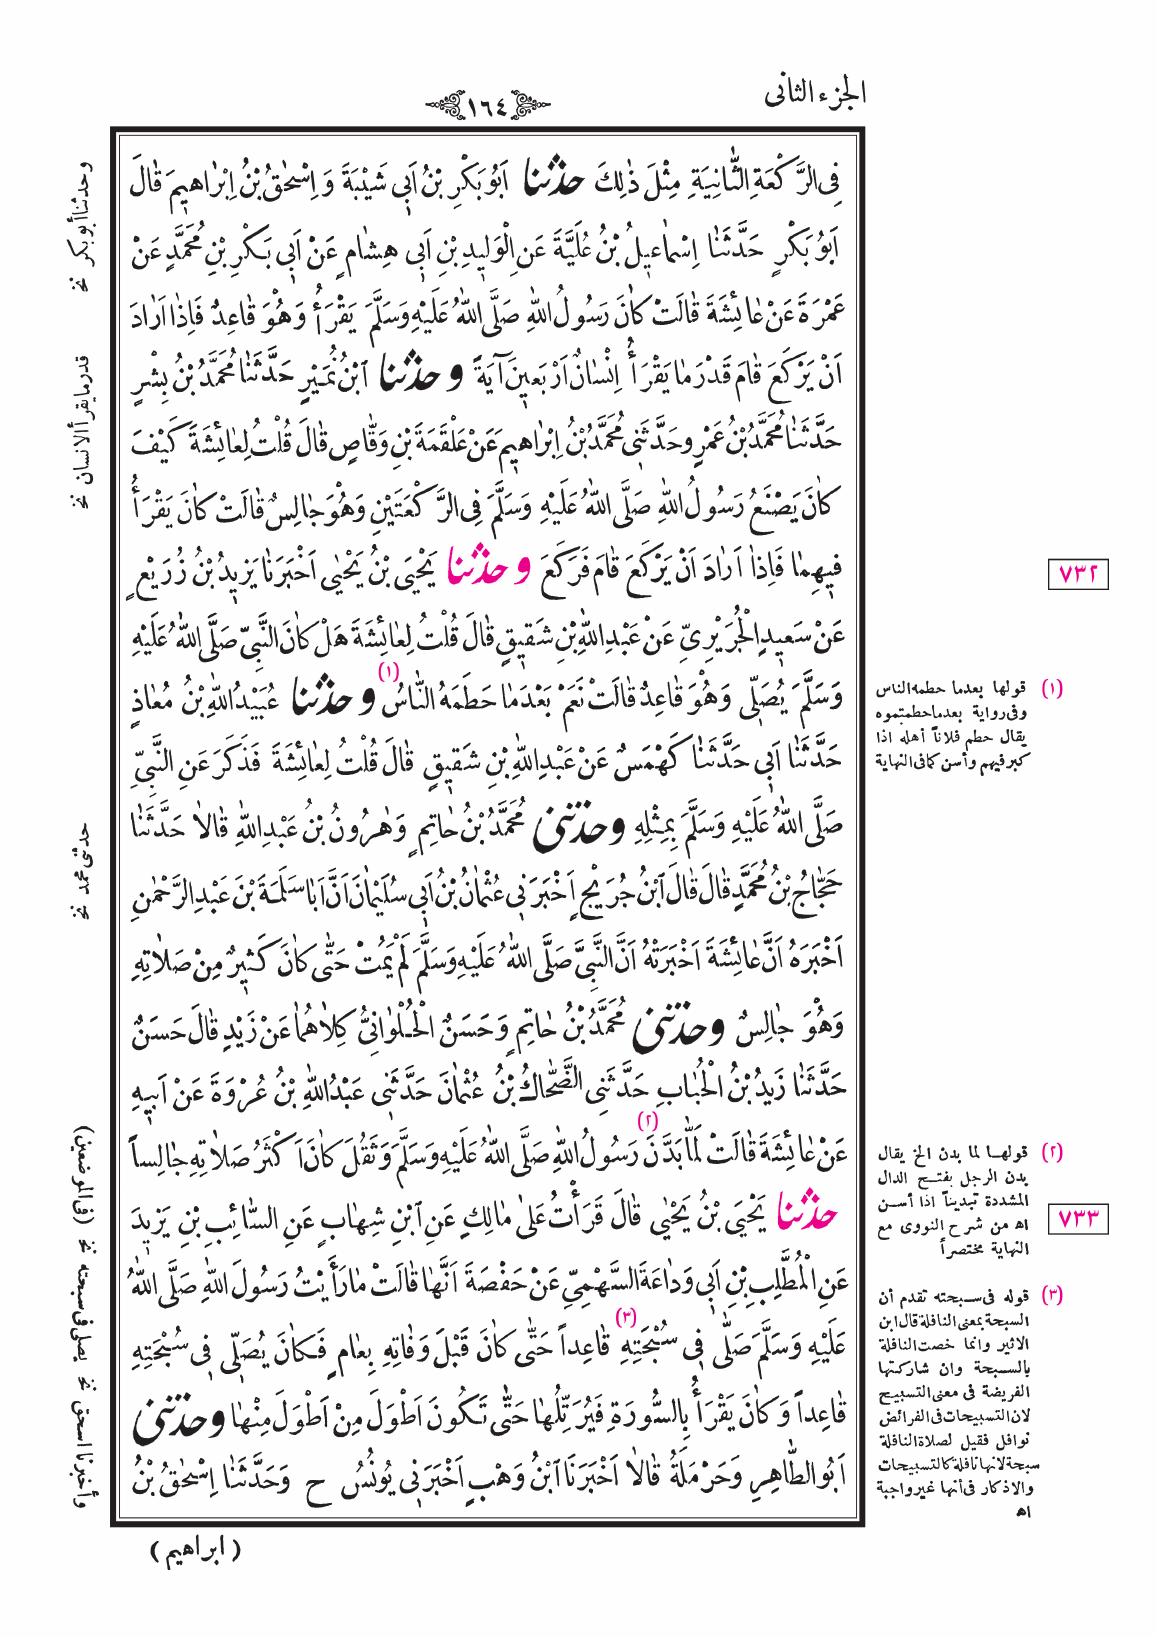 الجزء الثانى
١٦٤
فِى الرَّكْعَةِ الثَّانِيَةِ مِثْلَ ذٰلِكَ حدثنا اَبُو بَكْرِ بْنُ اَبِى شَيْبَةَ وَ اِسْحٰقُ بْنُ اِبْرٰاهِيمَ قَالَ
اَبُو بَكْرٍ حَدَّثَنَا اِسْمَاعِيلُ بْنُ عُلَيَّةَ عَنِ الْوَلِيدِ بْنِ اَبِى هِشَامٍ عَنْ اَبِى بَكْرِ بْنِ مُحَمَّدٍ عَنْ
عَمْرَةَ عَنْ عَائِشَةَ قَالَتْ كَانَ رَسُولُ اللهِ صَلَّى اللهُ عَلَيْهِ وَسَلَّمَ يَقْرَأُ وَهْوَ قَاعِدٌ فَاِذَا اَرَادَ
اَنْ يَرْكَعَ قَامَ قَدْرَ مَا يَقْرَأُ اِنْسَانٌ اَرْبَعِينَ آيَةً و حدثنا ابْنُ نُمَيْرٍ حَدَّثَنَا مُحَمَّدُ بْنُ بِشْرٍ
حَدَّثَنَا مُحَمَّدُ بْنُ عَمْرٍو حَدَّثَنِى مُحَمَّدُ بْنُ اِبْرَاهِيمَ عَنْ عَلْقَمَةَ بْنِ وَقَّاصٍ قَالَ قُلْتُ لِعَائِشَةَ كَيْفَ
كَانَ يَصْنَعُ رَسُولُ اللهِ صَلَّى اللهُ عَلَيْهِ وَسَلَّمَ فِى الرَّكْعَتَيْنِ وَهْوَ جَالِسٌ قَالَتْ كَانَ يَقْرَأُ
فِيهِمَا فَاِذَا اَرَادَ اَنْ يَرْكَعَ قَامَ فَرَكَعَ و حدثنا يَحْيَى بْنُ يَحْيٰى اَخْبَرَنَا يَزِيدُ بْنُ زُرَيْعٍ
عَنْ سَعِيدٍ الْجُرَيْرِىِّ عَنْ عَبْدِ اللهِ بْنِ شَقِيقٍ قَالَ قُلْتُ لِعَائِشَةَ هَلْ كَانَ النَّبِىُّ صَلَّى اللهُ عَلَيْهِ
وَسَلَّمَ يُصَلِّى وَهْوَ قَاعِدٌ قَالَتْ نَعَمْ بَعْدَمَا حَطَمَهُ النَّاسُ (١) و حدثنا عُبَيْدُ اللهِ بْنُ مُعَاذٍ
حَدَّثَنَا اَبِى حَدَّثَنَا كَهْمَسٌ عَنْ عَبْدِ اللهِ بْنِ شَقِيقٍ قَالَ قُلْتُ لِعَائِشَةَ فَذَكَرَ عَنِ النَّبِىِّ
صَلَّى اللهُ عَلَيْهِ وَسَلَّمَ بِمِثْلِهِ وحدثنى مُحَمَّدُ بْنُ حَاتِمٍ وَهٰرُونُ بْنُ عَبْدِ اللهِ قَالَا حَدَّثَنَا
حَجَّاجُ بْنُ مُحَمَّدٍ قَالَ قَالَ ابْنُ جُرَيْجٍ اَخْبَرَنِى عُثْمَانُ بْنُ اَبِى سُلَيْمَانَ اَنَّ اَبَا سَلَمَةَ بْنَ عَبْدِ الرَّحْمٰنِ
اَخْبَرَهُ اَنَّ عَائِشَةَ اَخْبَرَتْهُ اَنَّ النَّبِىَّ صَلَّى اللهُ عَلَيْهِ وَسَلَّمَ لَمْ يَمُتْ حَتَّى كَانَ كَثِيرٌ مِنْ صَلَاتِهِ
وَهْوَ جَالِسٌ وحدثنى مُحَمَّدُ بْنُ حَاتِمٍ وَحَسَنٌ الْحُلْوَانِىُّ كِلَاهُمَا عَنْ زَيْدٍ قَالَ حَسَنٌ
حَدَّثَنَا زَيْدُ بْنُ الْحُبَابِ حَدَّثَنِى الضَّحَّاكُ بْنُ عُثْمَانَ حَدَّثَنِى عَبْدُ اللهِ بْنُ عُرْوَةَ عَنْ اَبِيهِ
عَنْ عَائِشَةَ قَالَتْ لَمَّا بَدَّنَ (٢) رَسُولُ اللهِ صَلَّى اللهُ عَلَيْهِ وَسَلَّمَ وَثَقُلَ كَانَ اَكْثَرُ صَلَاتِهِ جَالِساً
حدثنا يَحْيَى بْنُ يَحْيٰى قَالَ قَرَأْتُ عَلَى مَالِكٍ عَنِ ابْنِ شِهَابٍ عَنِ السَّائِبِ بْنِ يَزِيدَ
عَنِ الْمُطَّلِبِ بْنِ اَبِى وَدَاعَةَ السَّهْمِىِّ عَنْ حَفْصَةَ اَنَّهَا قَالَتْ مَا رَأَيْتُ رَسُولَ اللهِ صَلَّى اللهُ
عَلَيْهِ وَسَلَّمَ صَلَّى فِى سُبْحَتِهِ (٣) قَاعِداً حَتَّى كَانَ قَبْلَ وَفَاتِهِ بِعَامٍ فَكَانَ يُصَلِّى فِى سُبْحَتِهِ
قَاعِداً وَكَانَ يَقْرَأُ بِالسُّورَةِ فَيُرَتِّلُهَا حَتَّى تَكُونَ اَطْوَلَ مِنْ اَطْوَلَ مِنْهَا وحدثنى
اَبُو الطَّاهِرِ وَحَرْمَلَةُ قَالَا اَخْبَرَنَا ابْنُ وَهْبٍ اَخْبَرَنِى يُونُسُ ح وَحَدَّثَنَا اِسْحٰقُ بْنُ
( ابراهيم )
٧٣٢
(١) قولها بعدما حطمه الناس
وفى رواية بعدما حطمتموه
يقال حطم فلاناً أهله اذا
كبر فيهم وأسن كما فى النهاية
(٢) قولها لما بدن الخ يقال
بدن الرجل بفتح الدال
المشددة تبديناً اذا أسن
اه من شرح النووى مع
النهاية مختصراً
٧٣٣
(٣) قوله فى سبحته تقدم أن
السبحة بمعنى النافلة قال ابن
الاثير وانما خصت النافلة
بالسبحة وان شاركتها
الفريضة فى معنى التسبيح
لان التسبيحات فى الفرائض
نوافل فقيل لصلاة النافلة
سبحة لانها نافلة كالتسبيحات
والاذكار فى أنها غير واجبة
اه
وحدثنا أبو بكر نخ
قدر ما يقرأ الانسان نخ
حدثنى محمد نخ
وأخبرنا اسحق نخ يصلى فى سبحته نخ (فى الموضعين)